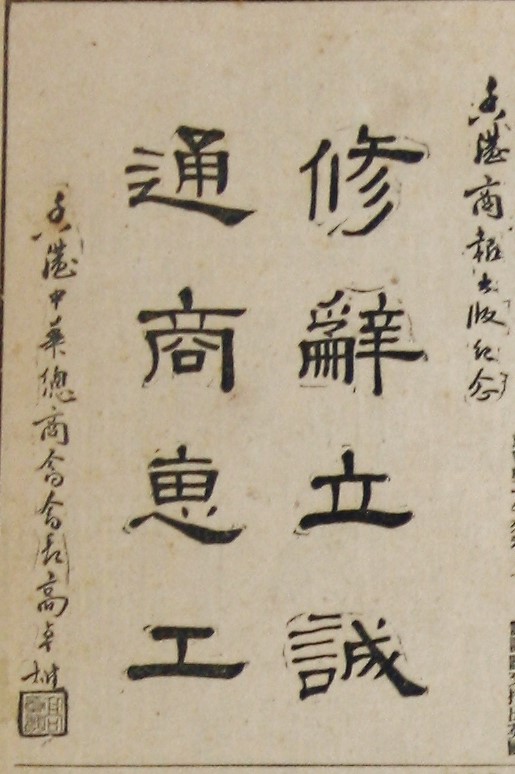 香港商報出版紀念
修辭立誠
通商惠工
香港中華總商會會長高卓雄